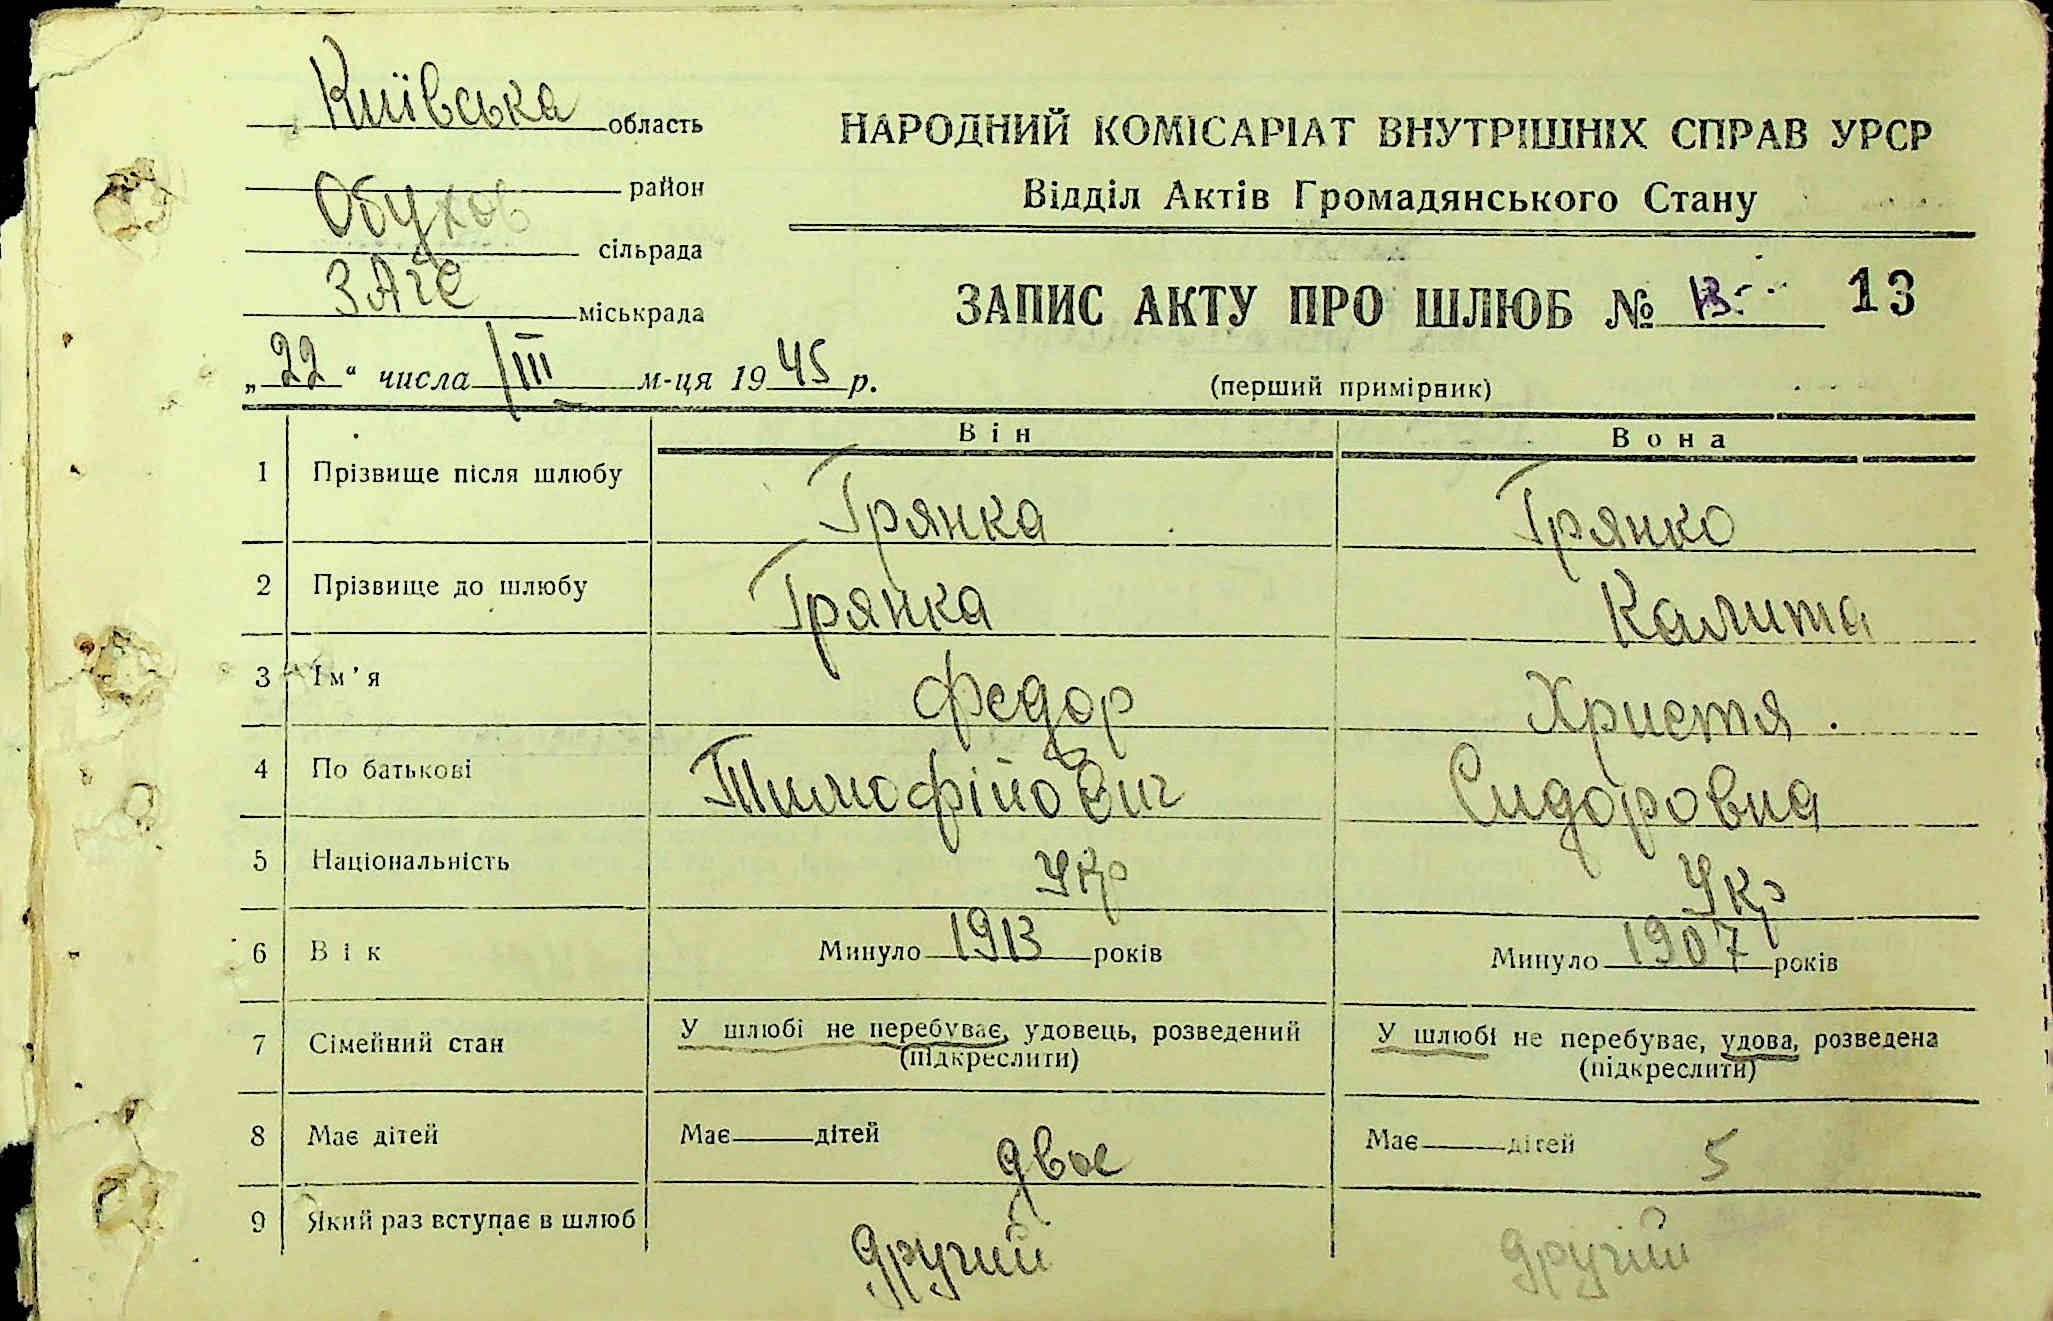 Київська область
Обухов район
сільрада
ЗАГС міськрада
„22“ числа III м-ця 1945 р.
НАРОДНИЙ КОМІСАРІАТ ВНУТРІШНІХ СПРАВ УРСР
Відділ Актів Громадянського Стану
ЗАПИС АКТУ ПРО ШЛЮБ № 13 13
(перший примірник)
Він Вона
1 Прізвище після шлюбу Грянка Грянко
2 Прізвище до шлюбу Грянка Калита
3 Ім’я Федор Христя
4 По батькові Тимофійович Сидоровна
5 Національність Укр Укр
6 Вік Минуло 1913 років Минуло 1907 років
7 Сімейний стан У шлюбі не перебуває, удовець, розведений У шлюбі не перебуває, удова, розведена
(підкреслити) (підкреслити)
8 Має дітей Має дітей двое Має дітей 5
9 Який раз вступає в шлюб другий другий